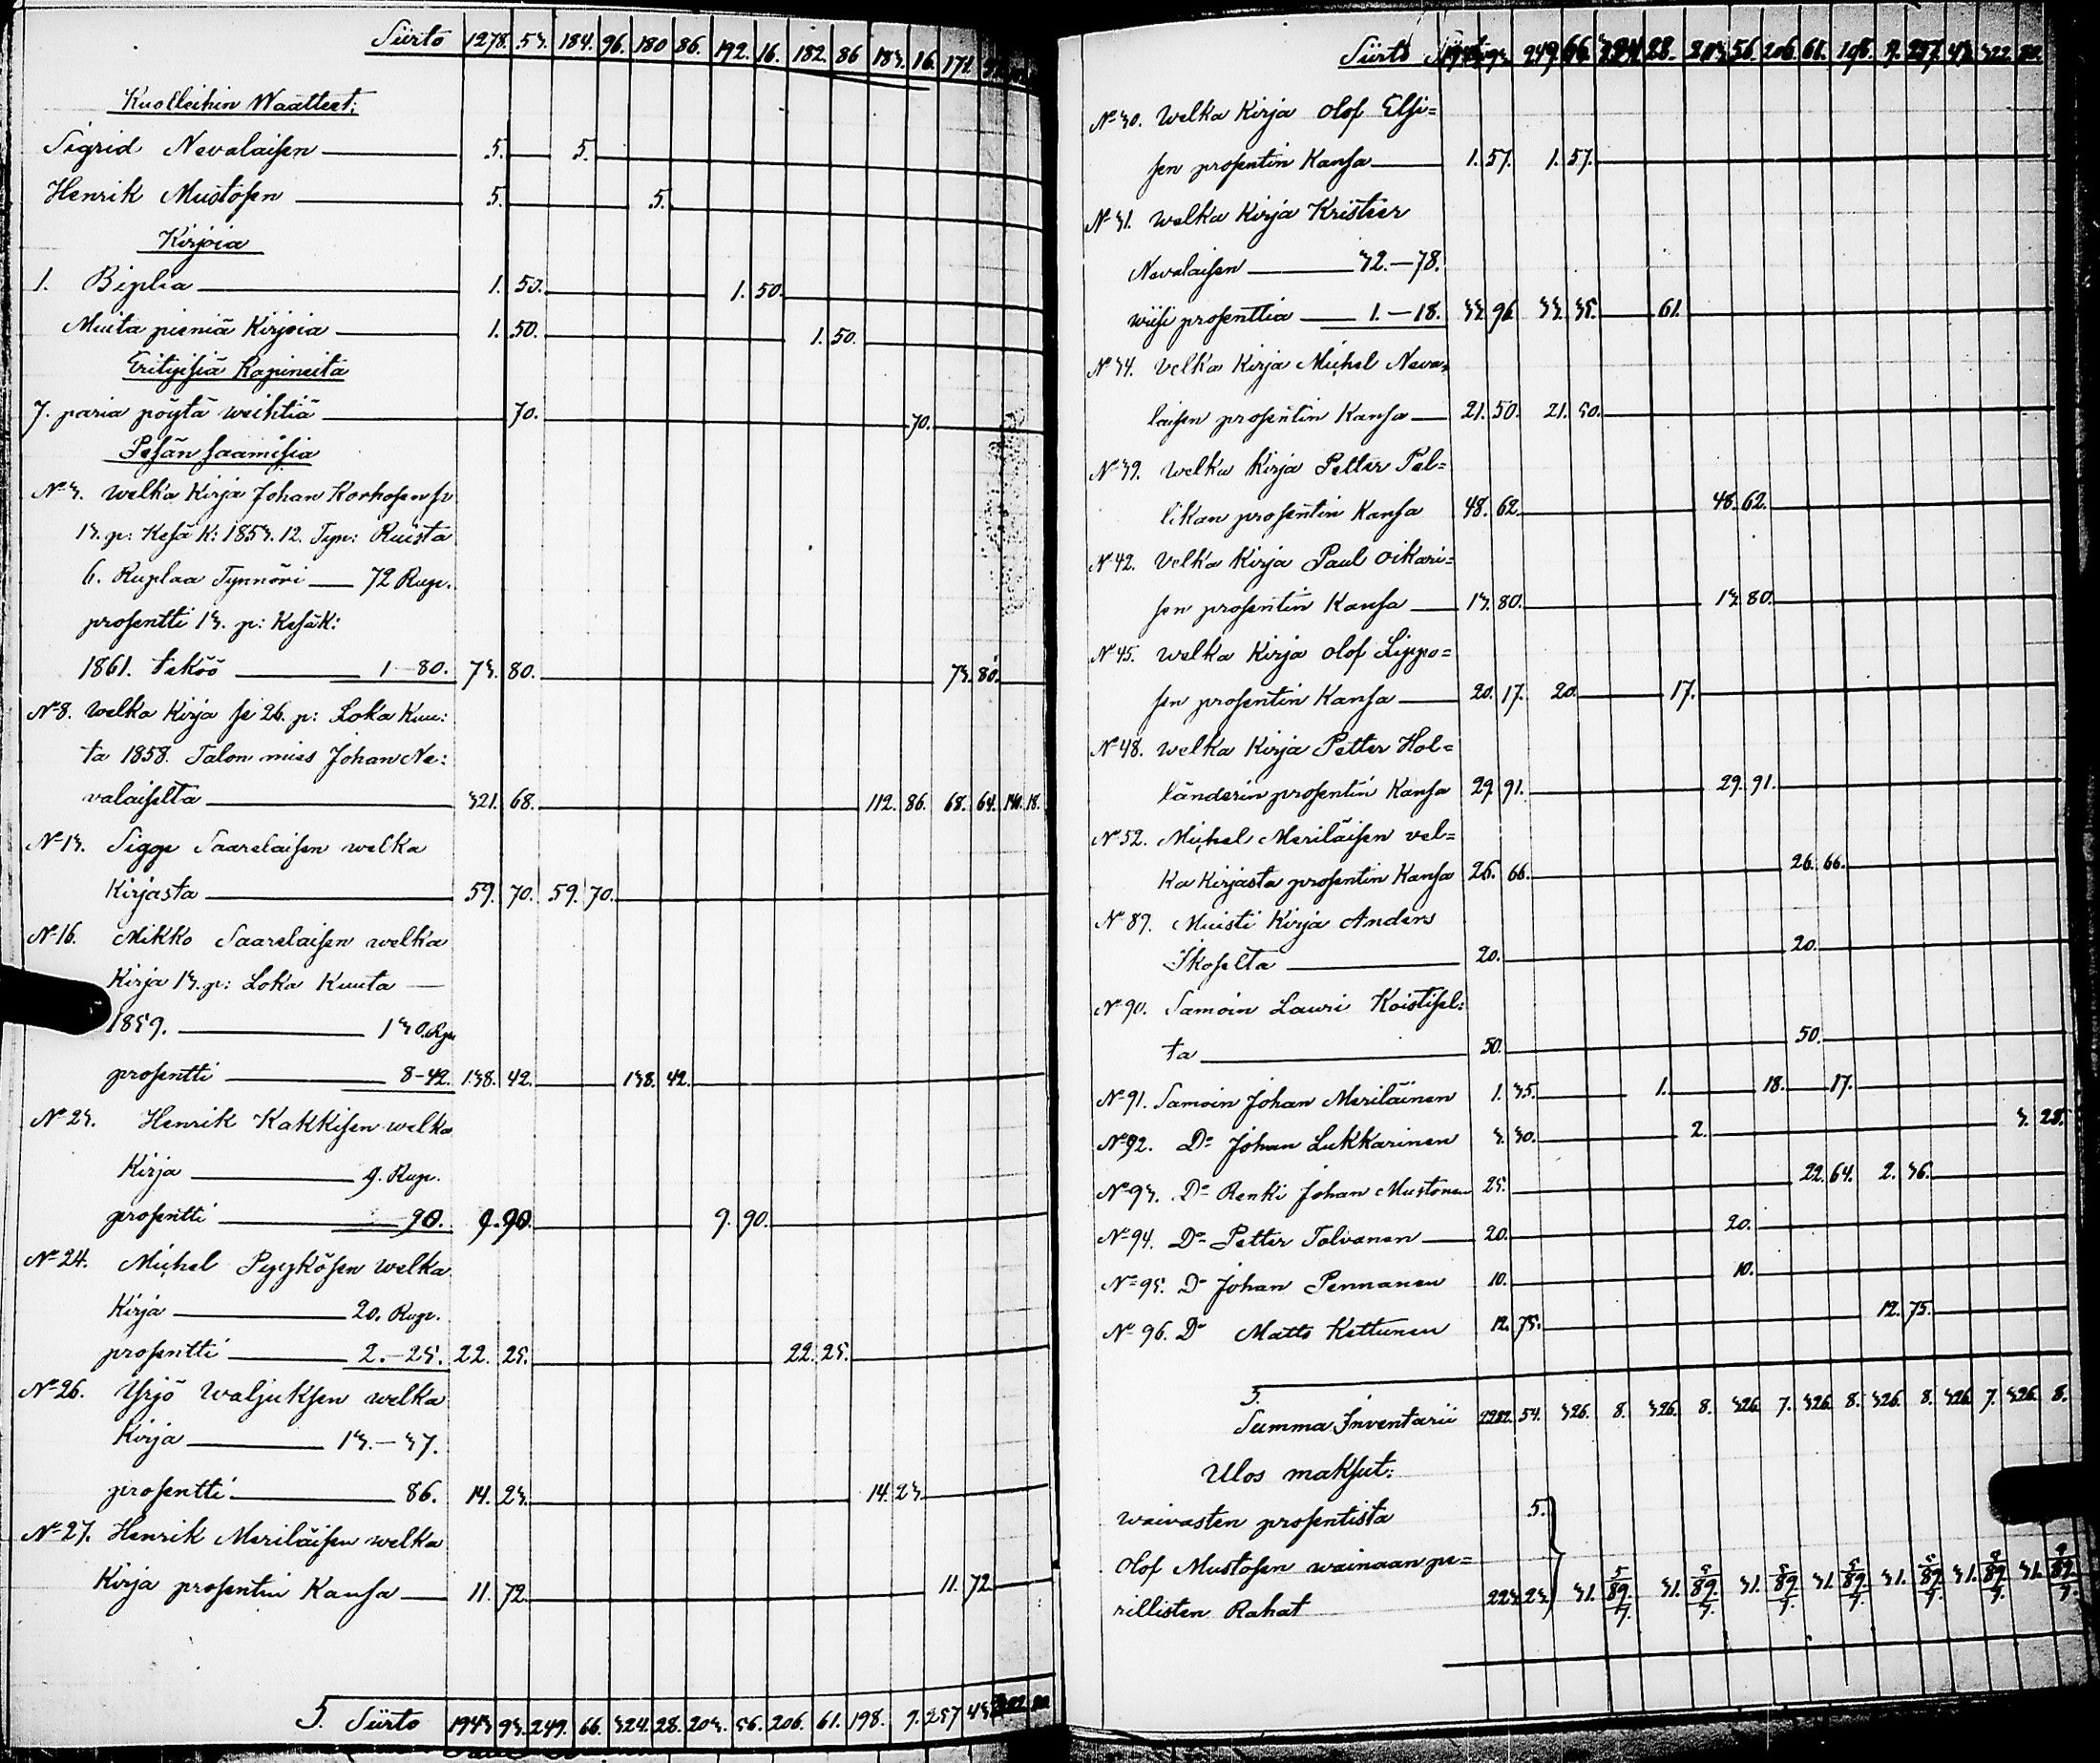 Siirto 1278. 53. 184. 96. 180 86. 192. 16. 182. 86 183. 16. 171
Kuolleihin Waatteet:
Sigrid Nevalaisen 5. 5.
Henrik Mustosen 5. 5.
Kirjoia
1. Biplia 1. 50. 1. 50.
Muita pieniä Kirjoia 1. 50. 1. 50.
Erityisiä Kapineita
7. paria pöytä weihtiä 70. 70.
Pesän saamisia
No 3. Welka Kirja Johan Korhosen se
13. p: Kesä K: 1853. 12. Tyn: Ruista
6. Ruplaa Tynnöri 72 Rup.
prosentti 13. p: Kesäk:
1861. teköö 1-80. 73. 80. 73. 80.
No 8. Welka Kirja se 26. p: Loka Kuu:
ta 1858. Talon mies Johan Ne:
valaiselta 321. 68. 112. 86. 68. 64. 140. 18.
No 13. Sigge Saarelaisen welka
Kirjasta 59. 70. 59. 70.
No 16. Mikko Saarelaisen welka
Kirja 13. p: Loka Kuuta
1859. 130. Rp.
prosentti 8-42. 138. 42. 138. 42.
No 23. Henrik Kakkisen welka
Kirja 9. Rup.
prosentti 90. 9. 90. 9. 90.
No 24. Michel Pyykösen welka
Kirja 20. Rup.
prosentti 2.-25. 22. 25. 22. 25.
No 26. Yrjö Waljuksen welka
Kirja 13.-37.
prosentti 86. 14. 23. 14. 23.
No 27. Henrik Meriläisen welka
Kirja prosentin Kansa 11. 72. 11. 72
S. Siirto 1943 93. 249. 66. 324. 28. 203. 56. 206. 61. 198. 9. 257 43 322. 80
Siirto 1943 93. 249. 66. 324 28. 203 56. 206. 61. 198. 9. 257. 43. 322. 80.
No 30. Welka Kirja Olof Elsi=
sen prosentin Kansa 1. 57. 1. 57.
No 31. Welka Kirja Krister
Nevalaisen 32.-78.
wiisi prosenttia 1.-18. 33. 96. 33. 35. 61.
No 34. Velka Kirja Michel Neva=
laisen prosentin Kansa 21. 50. 21. 50.
No 39. Welka Kirja Petter Pel=
likan prosentin Kansa 48. 62. 48. 62.
No 42. Velka Kirja Paul Oikari=
sen prosentin Kansa 13. 80. 13. 80.
No 45. Welka Kirja Olof Lippo=
sen prosentin Kansa 20. 17. 20. 17.
No 48. Welka Kirja Petter Hol=
länderin prosentin Kansa 29. 91. 29. 91.
No 52. Michel Meriläisen vel=
ka Kirjasta prosentin Kansa 26. 66. 26. 66.
No 89. Muisti Kirja Anders
Ikoselta 20. 20.
No 90. Samoin Lauri Koistisel:
ta 50. 50.
No 91. Samoin Johan Meriläinen 1. 35. 1. 18. 17.
No 92. Do Johan Lukkarinen 3. 30. 2. 3. 28.
No 93. Do Renki Johan Mustonen 25. 22. 64. 2. 36.
No 94. Do Petter Tolvanen 20. 20.
No 95. Do Johan Pennanen 10. 10.
No 96. Do Matts Kettunen 12. 75. 12. 75.
S.
Summa Inventarii 2282. 54. 326. 8. 326. 8. 326. 7. 326. 8. 326. 8. 326. 7. 326. 8.
Ulos maksut:
waivasten prosentista 5.
Olof Mustosen wainaan pe=
rillisten Rahat 223. 23. 31. 5/89./7. 31. 5/89./7. 31. 5/89./7. 31. 5/89./7. 31. 5/89./7. 31. 5/89./7. 31. 5/89./7.